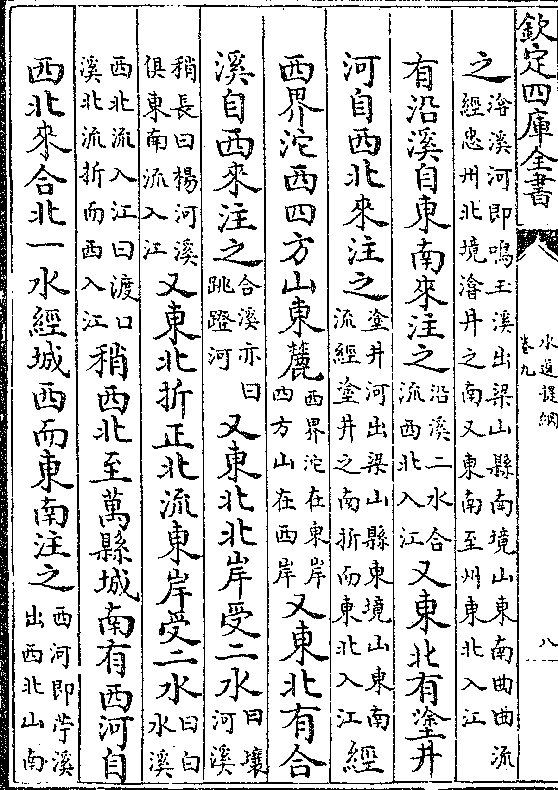 欽定四庫全書
水道提綱
卷九
八
之
海溪河即鳴玉溪出梁山縣南境山東南曲曲流
經忠州北境澮井之南又東南至州東北入江
有沿溪自東南來注之
沿溪二水合
流西北入江
又東北有塗井
河自西北來注之
塗井河出梁山縣東境山東南
流經塗井之南折而東北入江
經
西界沱西四方山東麓
西界沱在東岸
四方山在西岸
又東北有合
溪自西來注之
合溪亦曰
跳蹬河
又東北北岸受二水
曰壤
河溪
稍長曰楊河溪
俱東南流入江
又東北折正北流東岸受二水
曰白
水溪
西北流入江曰渡口
溪北流折而西入江
稍西北至萬縣城南有西河自
西北來合北一水經城西而東南注之
西河即苧溪
出西北山南